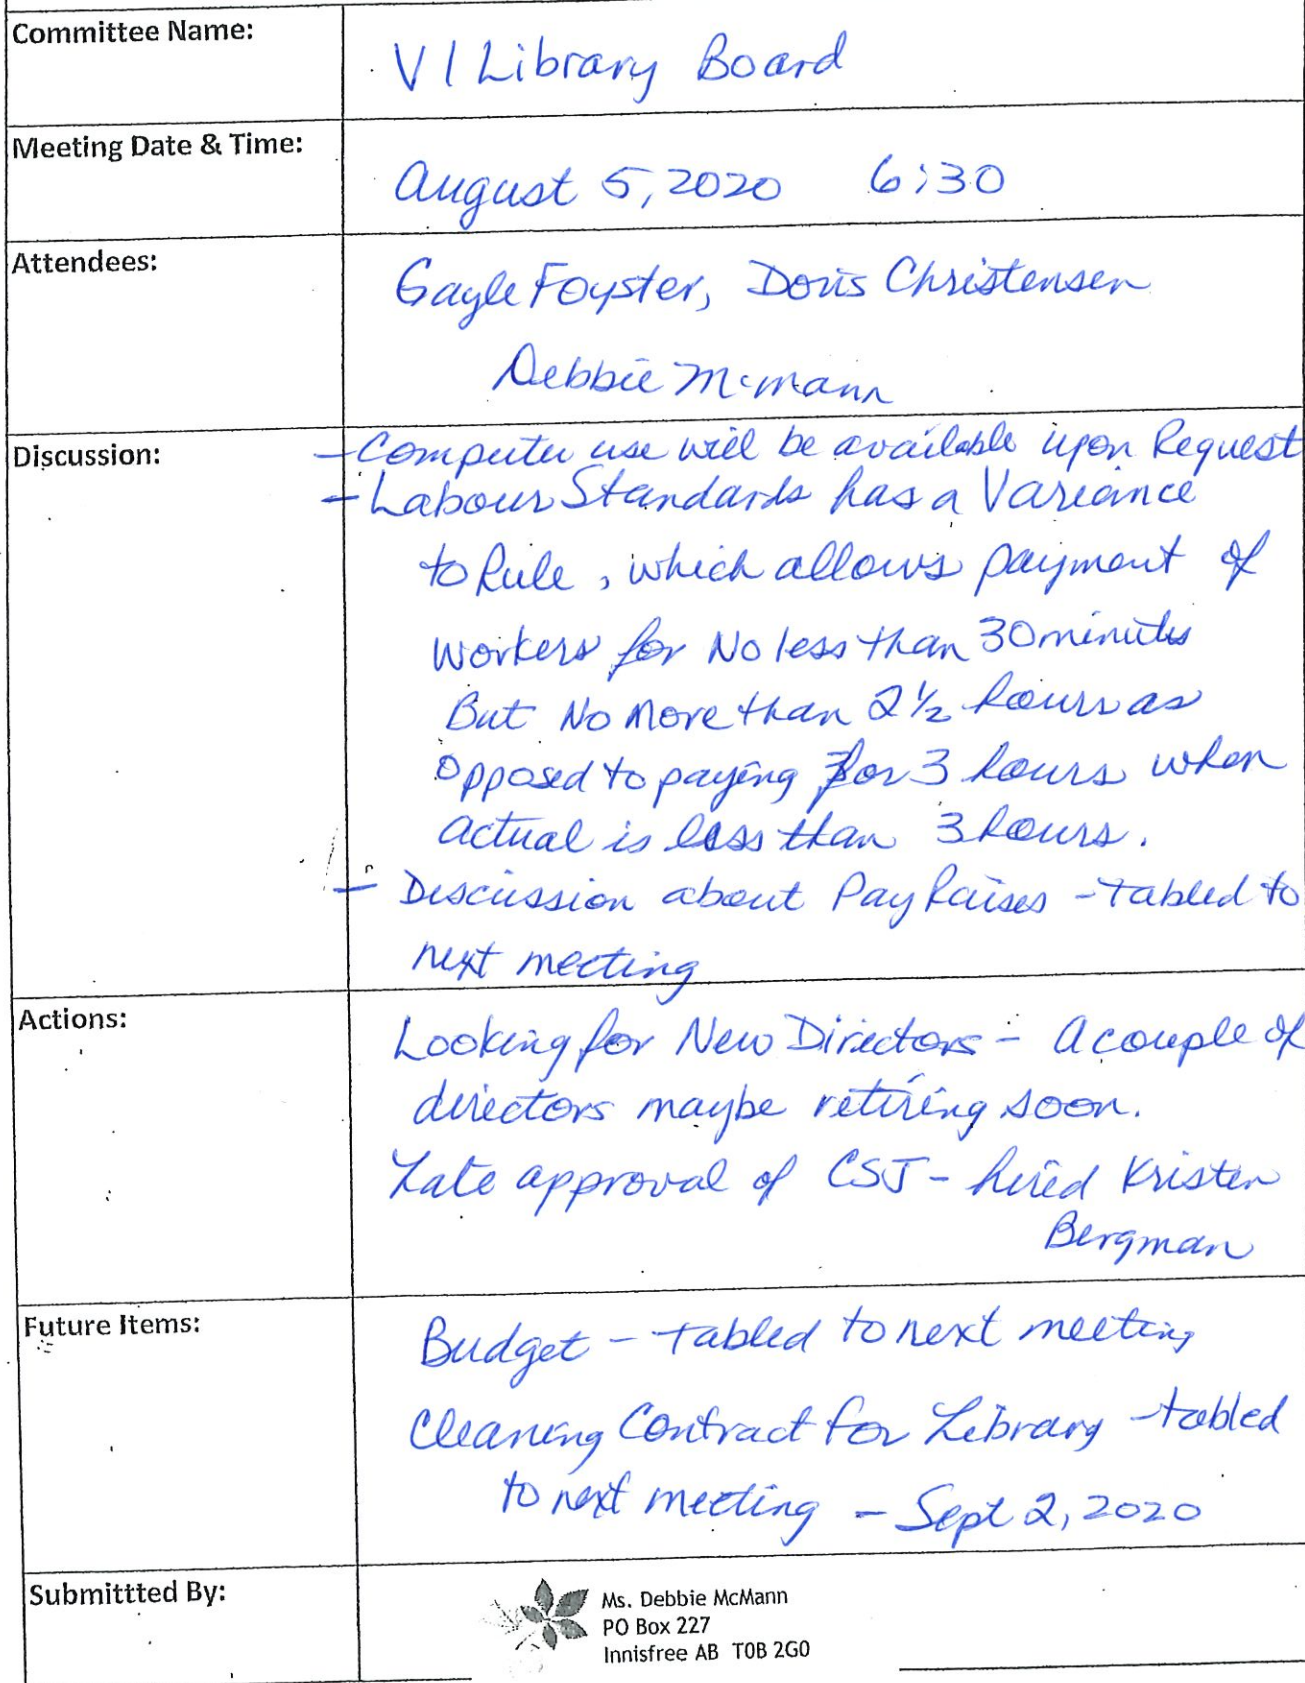 Committee Name:
VI Library Board
Meeting Date & Time:
August 5, 2020 6:30
Attendees:
Gayle Foyster, Doris Christensen
Debbie McMann
Discussion:
- Computer use will be available upon Request
- Labour Standards has a Variance
to Rule, which allows payment of
workers for No less than 30 minutes
But No More than 2 1/2 hours as
opposed to paying for 3 hours when
actual is less than 3 hours.
- Discussion about Pay Raises - tabled to
next meeting
Actions:
Looking for New Directors - A couple of
directors maybe retiring soon.
Late approval of CSJ - hired Kristen
Bergman
Future Items:
Budget - tabled to next meeting
Cleaning Contract for Library - tabled
to next meeting - Sept 2, 2020
Submittted By:
Ms. Debbie McMann
PO Box 227
Innisfree AB T0B 2G0